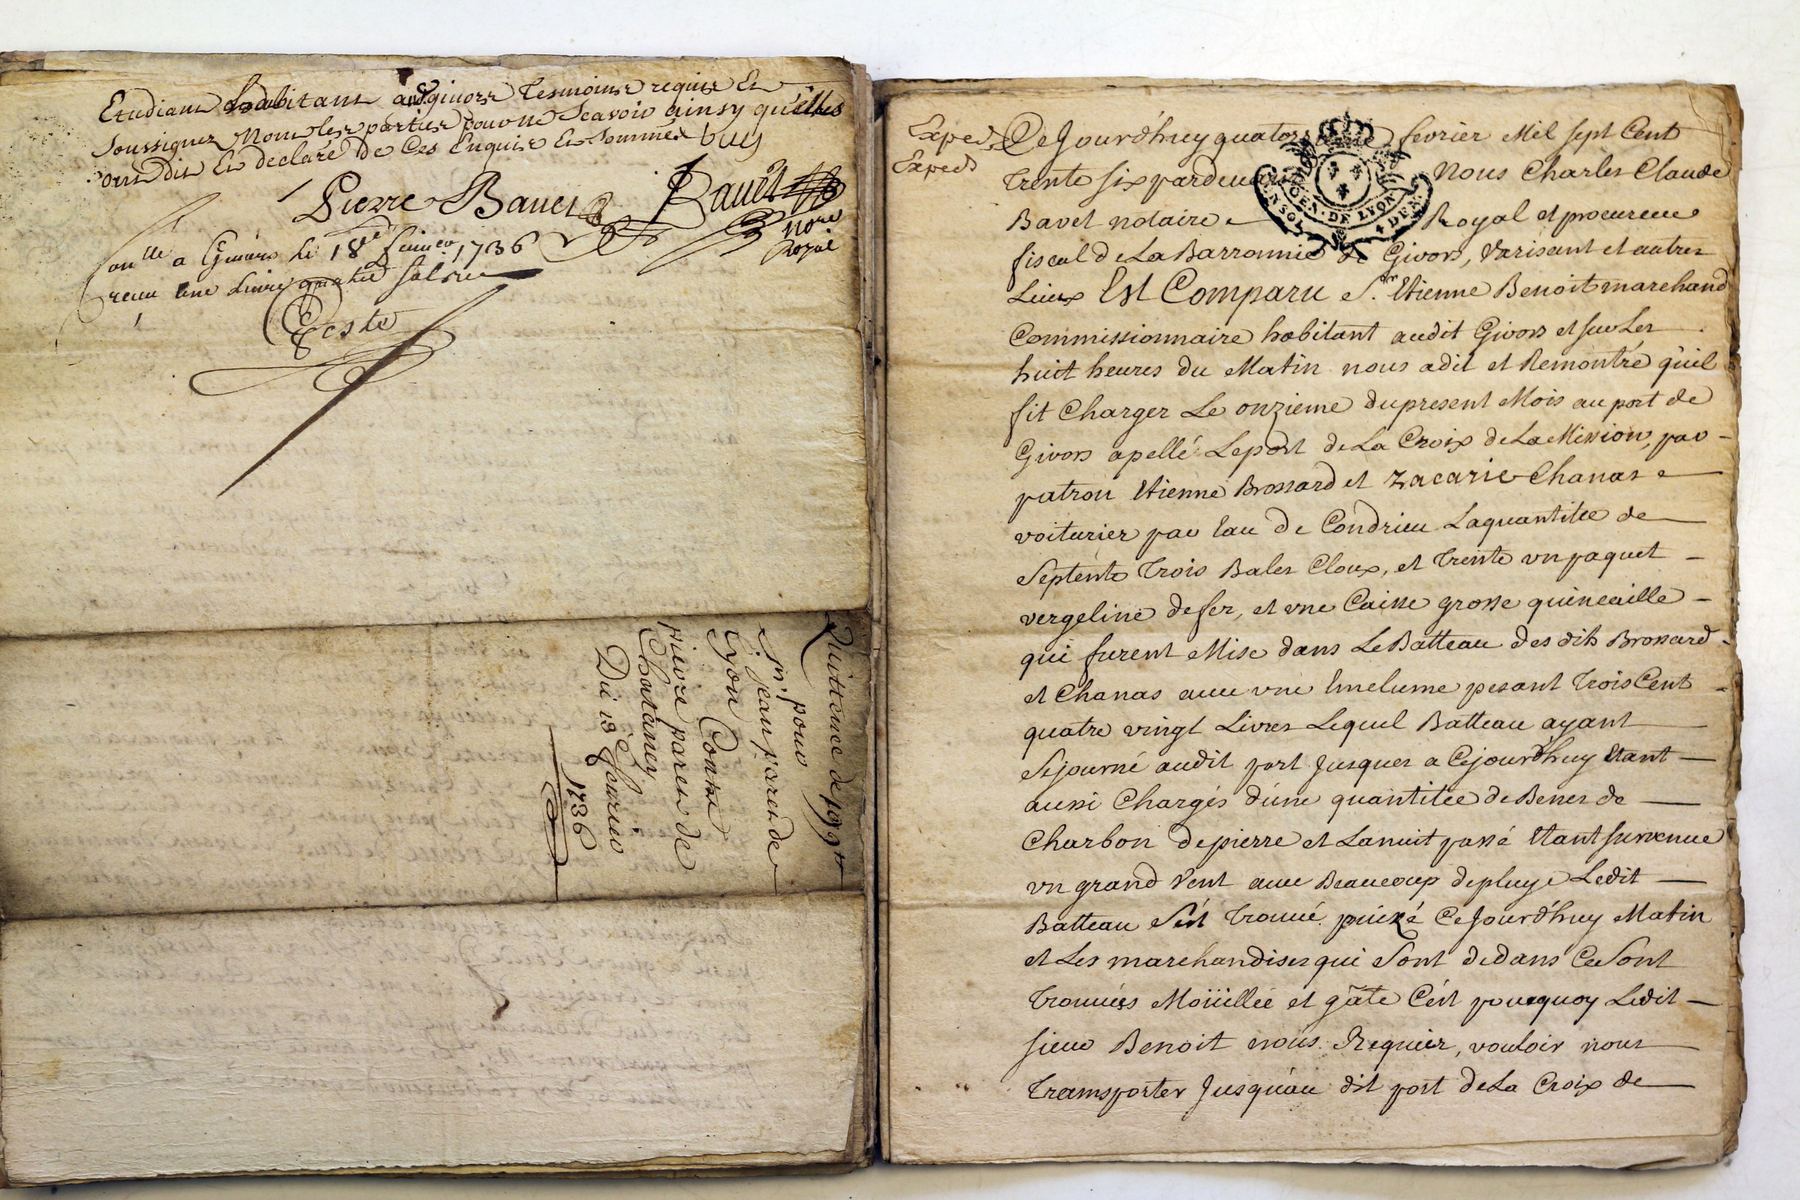 Etudiant habitant audit givors Tesmoins requis Et
Soussignez Non les parties pour ne Scavoir ainsy qu'elles
ont dit Et declaré de Ces Enquis Et Sommées
Pierre Bavet
Bavet
No.re
Royal
Con.llé a Givors le 18e feuvrier 1736
receu une Livre quatre sols
Teste
Quittence de 199 ₶
pour
Sr. jean paret de
Lyon Contre
Pierre paret de
Chataney
Du 13 feurier
1736
Exped.
Exped.
Ce Jourd'huy quatorzieme fevrier Mil sept Cent
trente six pardevant Nous Charles Claude
Bavet notaire Royal et procureur
fiscal de La Barronnie de Givors, Varisant et autres
Lieux Est Comparu Sr. Etienne Benoit marchand
Commissionnaire habitant audit Givors et sur Les
huit heures du Matin nous a dit et Remontré qu'il
fit Charger Le onzieme du present Mois au port de
Givors apellé Leport de La Croix de La Mission, par
patron Etienne Brossard et Zacarie Chanas
voiturier par Eau de Condrieu Laquantitée de
Septente Trois Bales Cloux, et Trente vn paquet
vergeline de fer, et vne Caisse grosse quincaille
qui furent Mise dans Le Batteau des dits Brossard
et Chanas avec vne Enclume pesant Trois Cent
quatre vingt Livres Lequel Batteau ayant
Sejourné audit port Jusques a Cejourd'huy Etant
aussi Chargés d'une quantitée de Benes de
Charbon de pierre et La nuit passé Etant survenue
vn grand Vent avec Beaucoup de pluye Ledit
Batteau S'est Trouvé puixé Ce Jourd'huy Matin
et Les marchandises qui Sont dedans Ce Sont
Trouvées Moüillée et gâte C'est pourquoy Ledit
sieur Benoit nous Requier, vouloir nous
Transporter Jusqu'au dit port de La Croix de
GEN. DE LYON